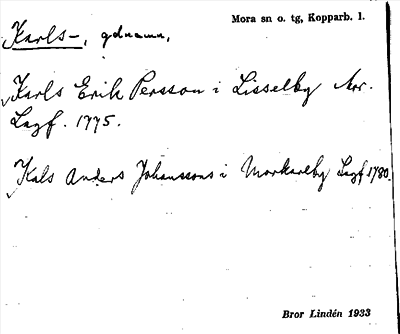 Mora sn o. tg, Kopparb. l.
Karls-, gdnamn,
Karls Erik Persson i Lisselby Mor.
Lagf. 1775.
Kals Anders Johanssons i Morkarlby Lagf 1780.
Bror Lindén 1933